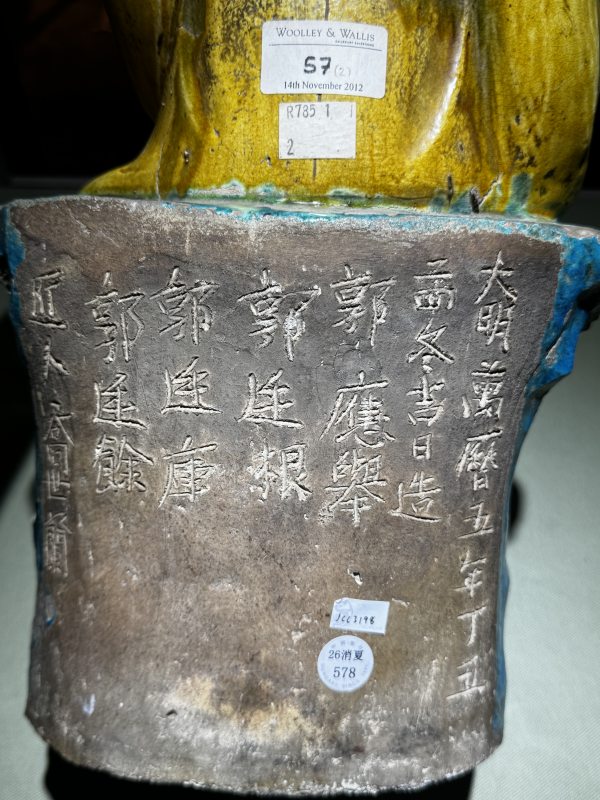 WOOLLEY & WALLIS
57 (2)
14th November 2012
R785 1 1
2
大明萬曆五年丁丑
孟冬吉日造
郭應舉
郭廷根
郭廷庫
郭廷餘
匠人喬世貴
JCC3198
26消夏
578